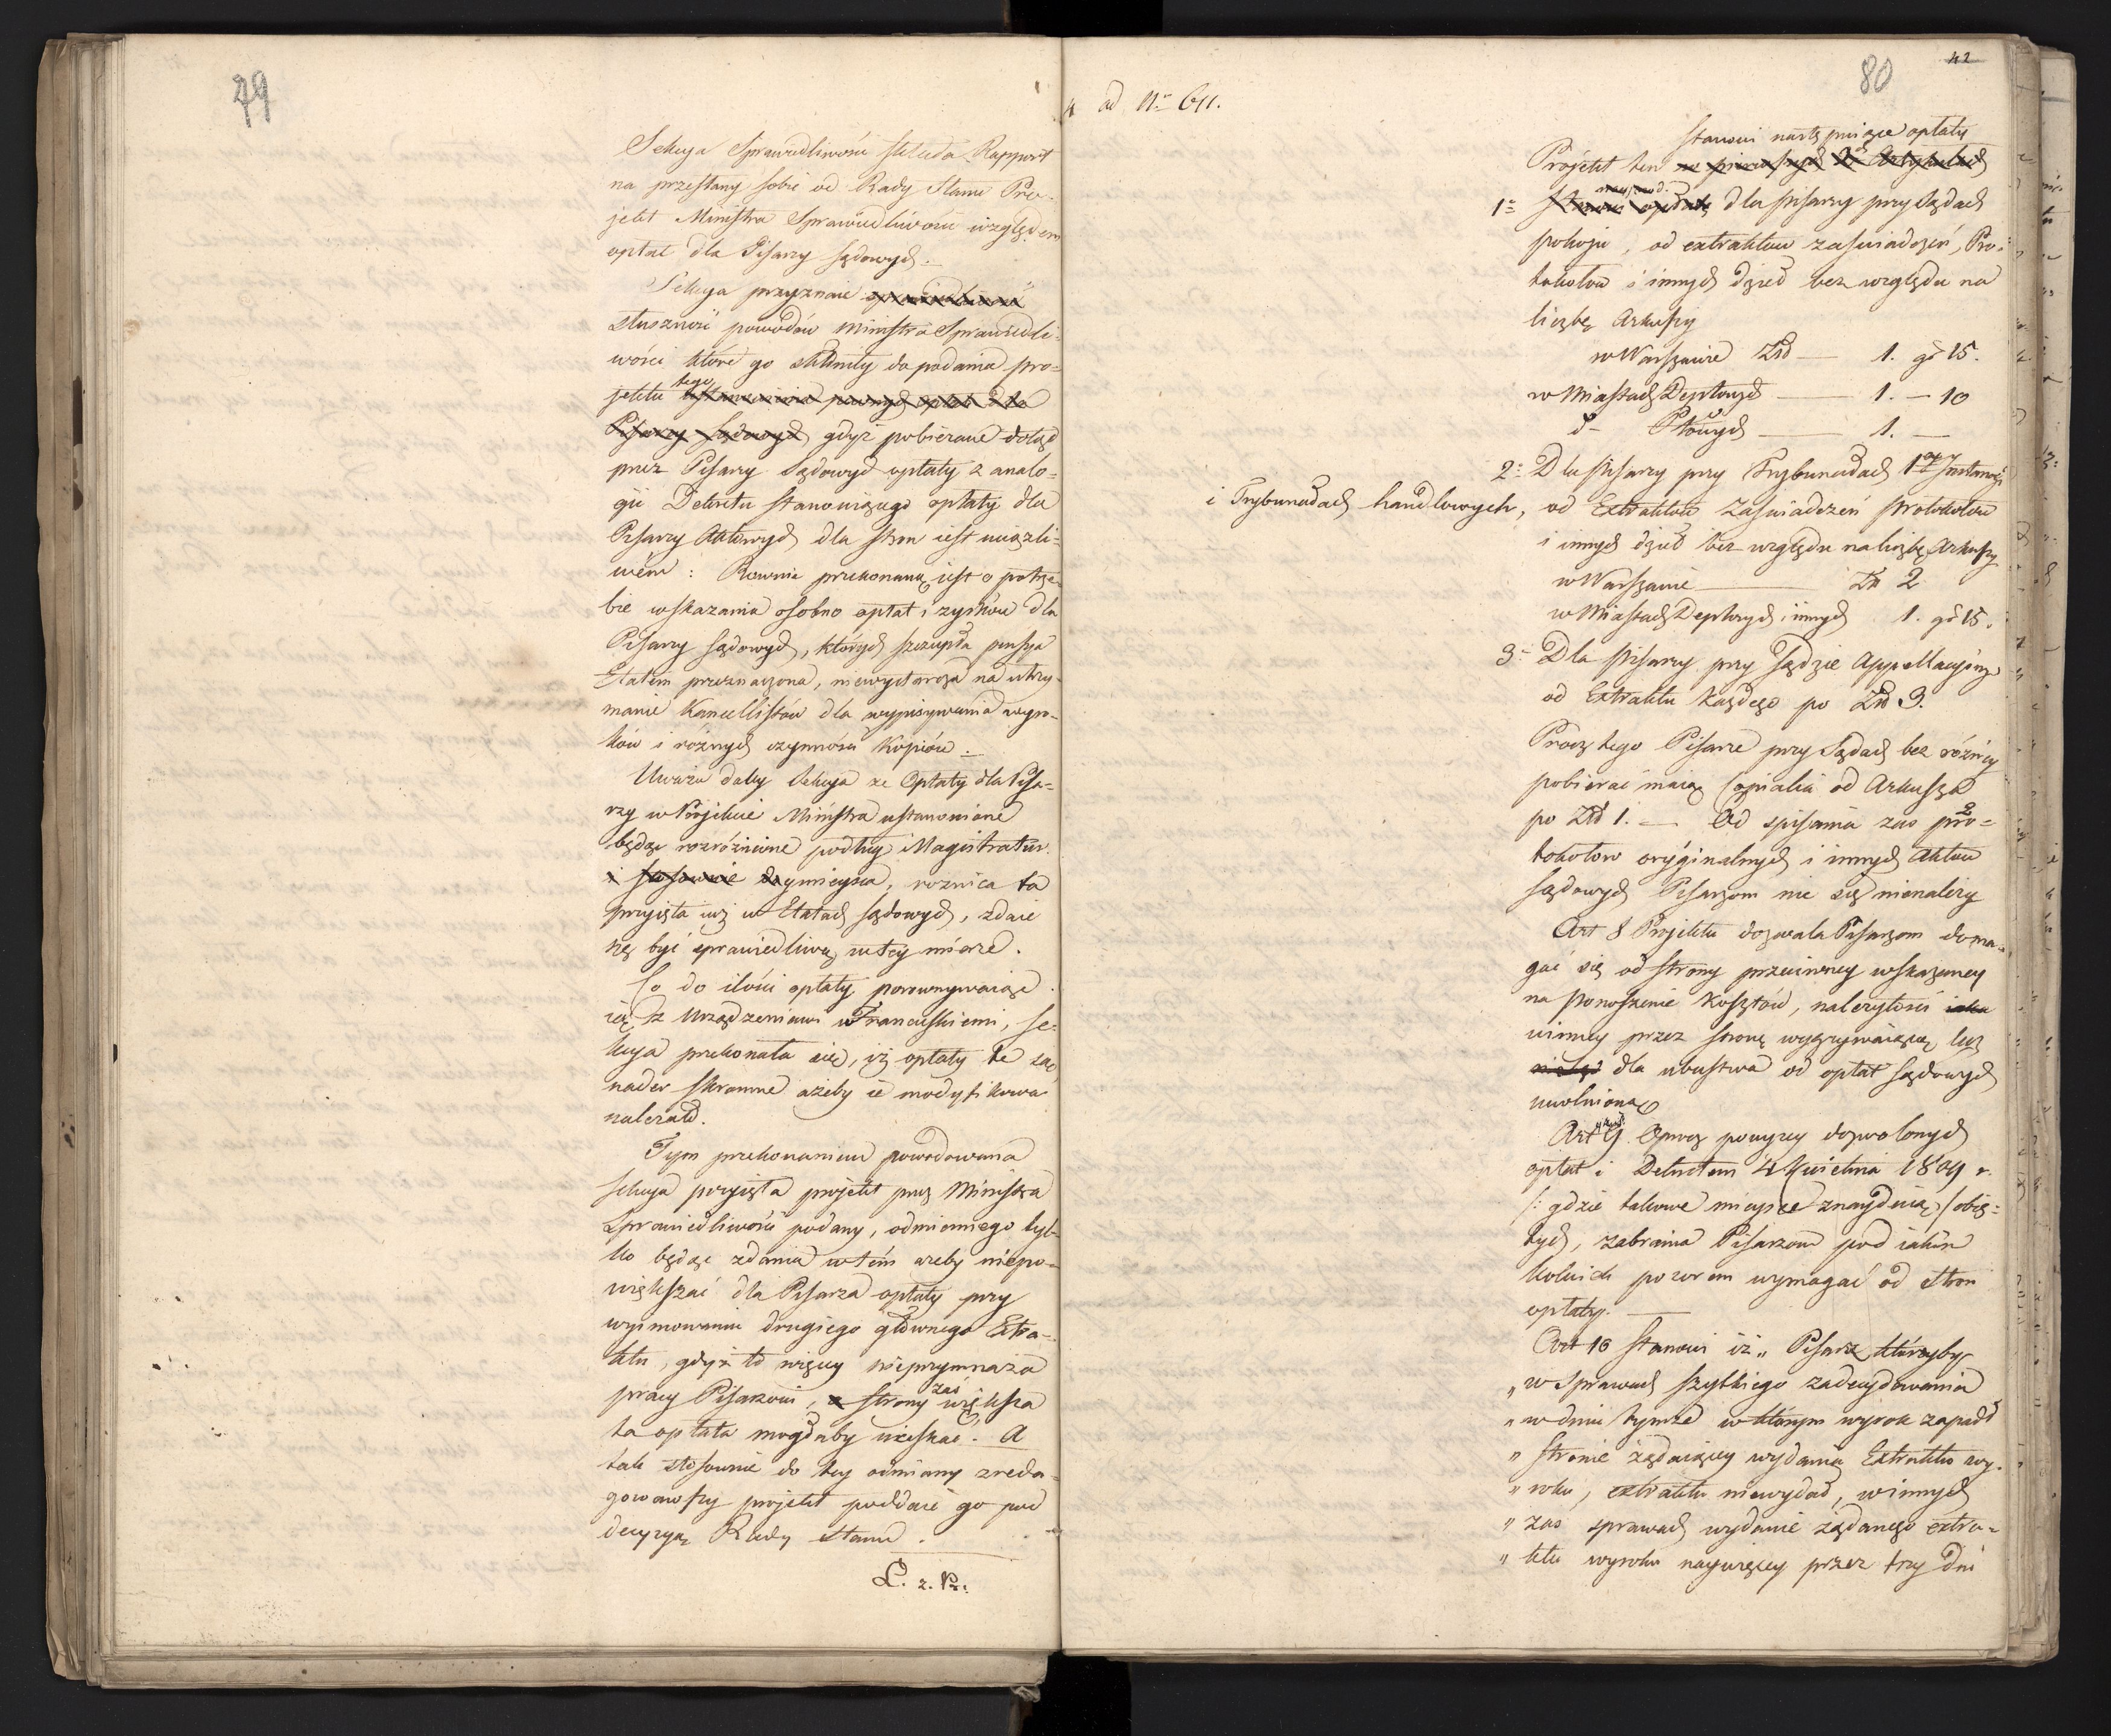 79
Sekcya Sprawiedliwości składa Rapport
na przesłany sobie od Rady Stanu Pro-
jekt Ministra Sprawiedliwości względem
opłat dla Pisarzy sądowych.
Sekcya przyznaie
słuszność powodów Ministra Sprawiedli-
wości które go skłoniły do podania pro-
jektu tego ustanowienia pewnych opłat dla
Pisarzy sądowych, gdyż pobierane dotąd
przez Pisarzy Sądowych opłaty z analo-
gii Dekretu stanowiącego opłaty dla
Pisarzy Aktowych dla stron iest uciążli-
wém: Rownie przekonaną iest o potrze-
bie wskazania osobno opłat i zysków dla
Pisarzy sądowych, których szczupła pensya
Etatem przeznaczona, niewystarcza na utrzy-
manie Kancellistów dla wypisywania wyro-
ków i różnych czynności Kopiów.
Uważa daley Sekcya że Opłaty dla Pisa-
rzy w Projekcie Ministra ustanowione
będąc rozróżnione podług Magistratur
i stosownie do mieysca, roznica ta
przyięta iuż w Etatach sądowych, zdaie
się być sprawiedliwą w tey mierze.
Co do ilości opłaty porownywaiąc
ią z Urządzeniami Francuskiemi, Se-
kcya przekonała się, iż opłaty te są
nader skromne ażeby ie modyfikować
należało.
Tym przekonaniem powodowana
Sekcya przyięła projekt przez Ministra
Sprawiedliwości podany, odmiennego tyl-
ko będąc zdania w tém ażeby niepo-
większać dla Pisarza opłaty przy
wyimowaniu drugiego głównego Extra-
ktu, gdyż to więcey nieprzymnaża
pracy Pisarzowi, a strony zaś większa
ta opłata mogłaby uciskać. A
tak stosownie do tey odmiany zreda-
gowawszy projekt poddaie go pod
decyzyą Rady Stanu.
L. z. Pr:
ad Nr 611.
80
42
stanowi następuiące opłaty
Projekt ten w pierwszych Artykułach
1º stanowi opłatę dla Pisarzy przy Sądach
pokoju, od extraktow zaświadczeń, Pro-
tokołow i innych dzieł bez względu na
liczbę Arkuszy
w Warszawie Złł — 1. gr 15.
w Miastach Deptowych — 1. — 10
d- Ptowych — 1. —
2º Dla Pisarzy przy Trybunałach 1ey Instancyi
i Trybunałach handlowych, od Extraktow Zaświadczeń protokołow
i innych dzieł bez względu na liczbę Arkuszy
w Warszawie — Zł 2
w Miastach Deptowych i innych 1. gr 15.
3º Dla Pisarzy przy Sądzie Appellacyinym
od Extraktu każdego po Złł 3.
Prócz tego Pisarze przy Sądach bez róźnicy
pobierać maią Copialia od Arkusza
po Złł 1. — Od spisania zas pro-
tokołow oryginalnych i innych Aktow
sądowych Pisarzom nic się nienależy
Art 8 Projektu dozwala Pisarzom doma-
gać się od strony przeciwney wskazaney
na ponoszenie kosztów, należytości
winney przez stronę wygrywaiącą lecz
dla ubustwa od opłat sądowych
uwolnioną
Art 9. Oprócz powyzey dozwolonych
opłat i Dekretem 4 Kwietnia 1809 r.
/: gdzie takowe mieysce znayduią / obię-
tych, zabrania Pisarzom pod iakim
kolwiek pozorem wymagać od stron
opłaty. —
Art 10 stanowi iż „ Pisarz któryby
„ w Sprawach szybkiego zadecydowania
„ w dniu tymże w którym wyrok zapadł
„ stronie żądaiącey wydania Extraktu wy-
„ roku, extraktu niewydał, w innych
„ zas sprawach wydanie żądanego extra-
„ ktu wyroku naywięcey przez trzy dni